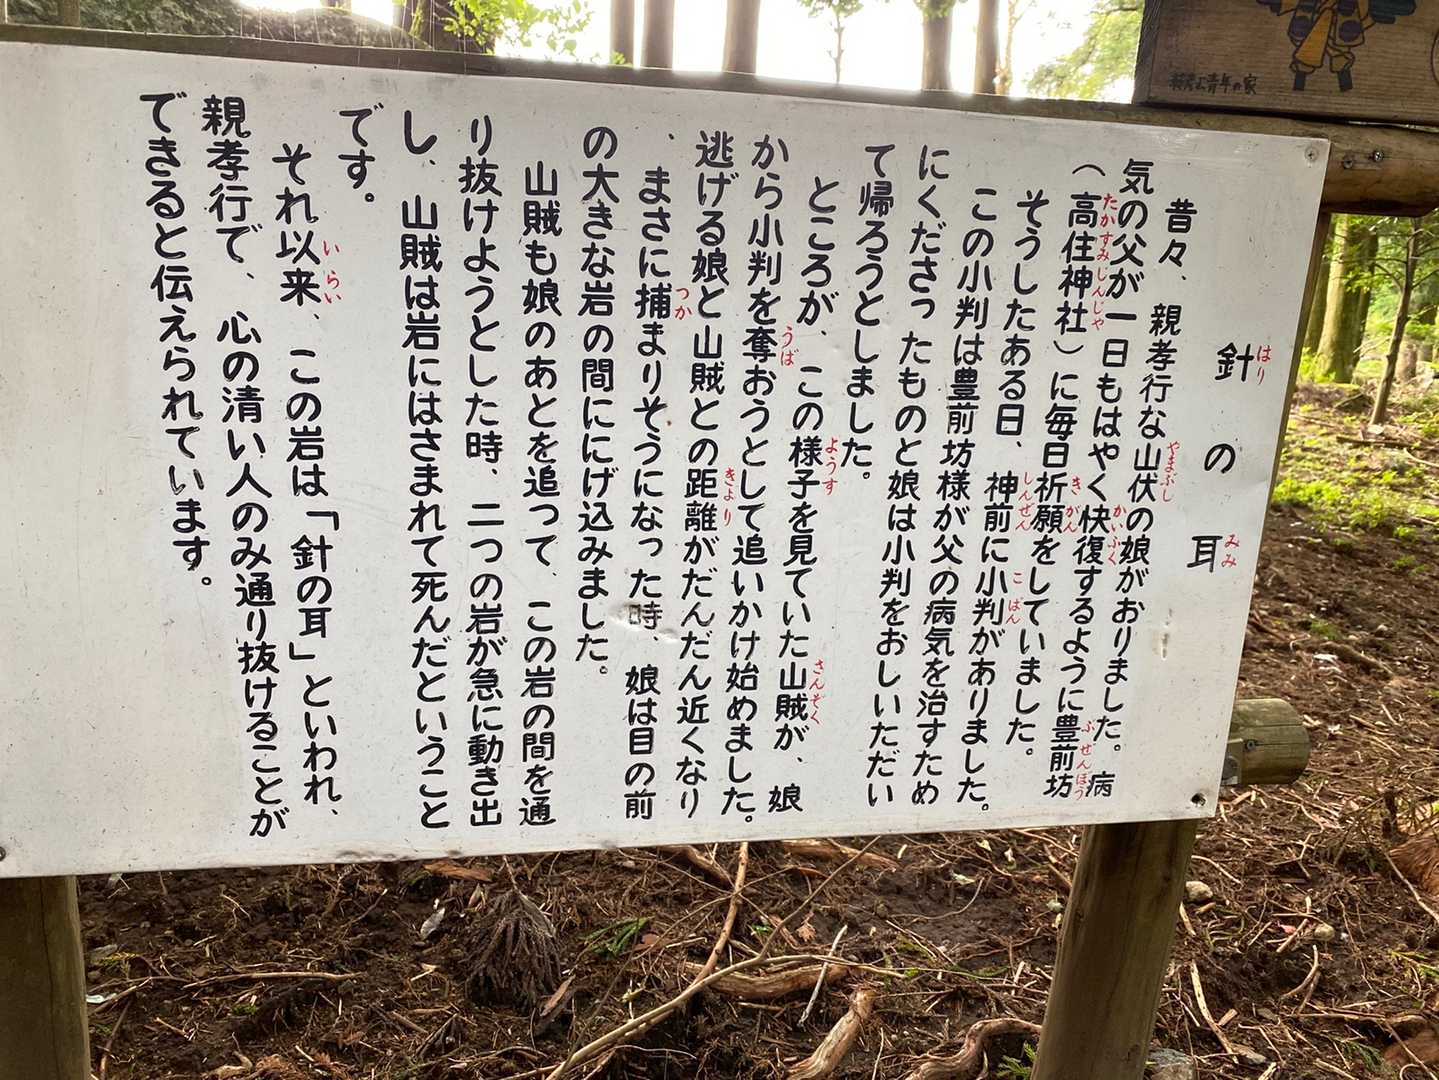 針の耳
昔々、親孝行な山伏の娘がおりました。病
気の父が一日もはやく快復するように豊前坊
(高住神社)に毎日祈願をしていました。
そうしたある日、神前に小判がありました。
この小判は豊前坊様が父の病気を治すため
にくださったものと娘は小判をおしいただい
て帰ろうとしました。
ところが、この様子を見ていた山賊が、娘
から小判を奪おうとして追いかけ始めました。
逃げる娘と山賊との距離がだんだん近くなり
、まさに捕まりそうになった時、娘は目の前
の大きな岩の間ににげ込みました。
山賊も娘のあとを追って、この岩の間を通
り抜けようとした時、二つの岩が急に動き出
し、山賊は岩にはさまれて死んだということ
です。
それ以来、この岩は「針の耳」といわれ、
親孝行で、心の清い人のみ通り抜けることが
できると伝えられています。
はり
みみ
やまぶし
かいふく
ぶぜんぼう
たかすみじんじゃ
きがん
しんぜん
こばん
ようす
さんぞく
うば
きょり
つか
いらい
青年の家